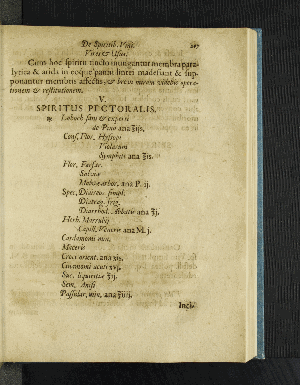 De Spiritib. Vini. 217
Vires & Usus.
Cum hoc spiritu tincto inungantur membra para-
lytica & arida in eoque panni lintei madefiant & sup-
ponantur membris affectis, & brevi miram videbis opera-
tionem & restitutionem.
V.
SPIRITUS PECTORALIS.
℞ Enboch sum & expertii
de Pino ana ℥iß.
Cons. Flor. Hyssopi
Violarum
Symphiti ana ℥is.
Flor. Farfar.
Salviæ
Malvæ arbor. ana P. ij.
Spec. Diaireos simpl.
Diatrag. frig.
Diarrhod. Abbatis ana ℥j.
Herb. Marrubij
Capill. Veneris ana M. j.
Cardamomi min.
Maceris
Croci orient. ana
Cinamomi acuti
Suc. liquiritiæ ℥ij.
Sem. Anisi
Passular. min. ana ℥iiij.
Incî-